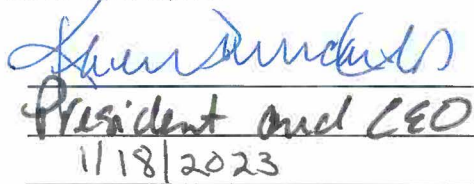 President and CEO
1/18/2023